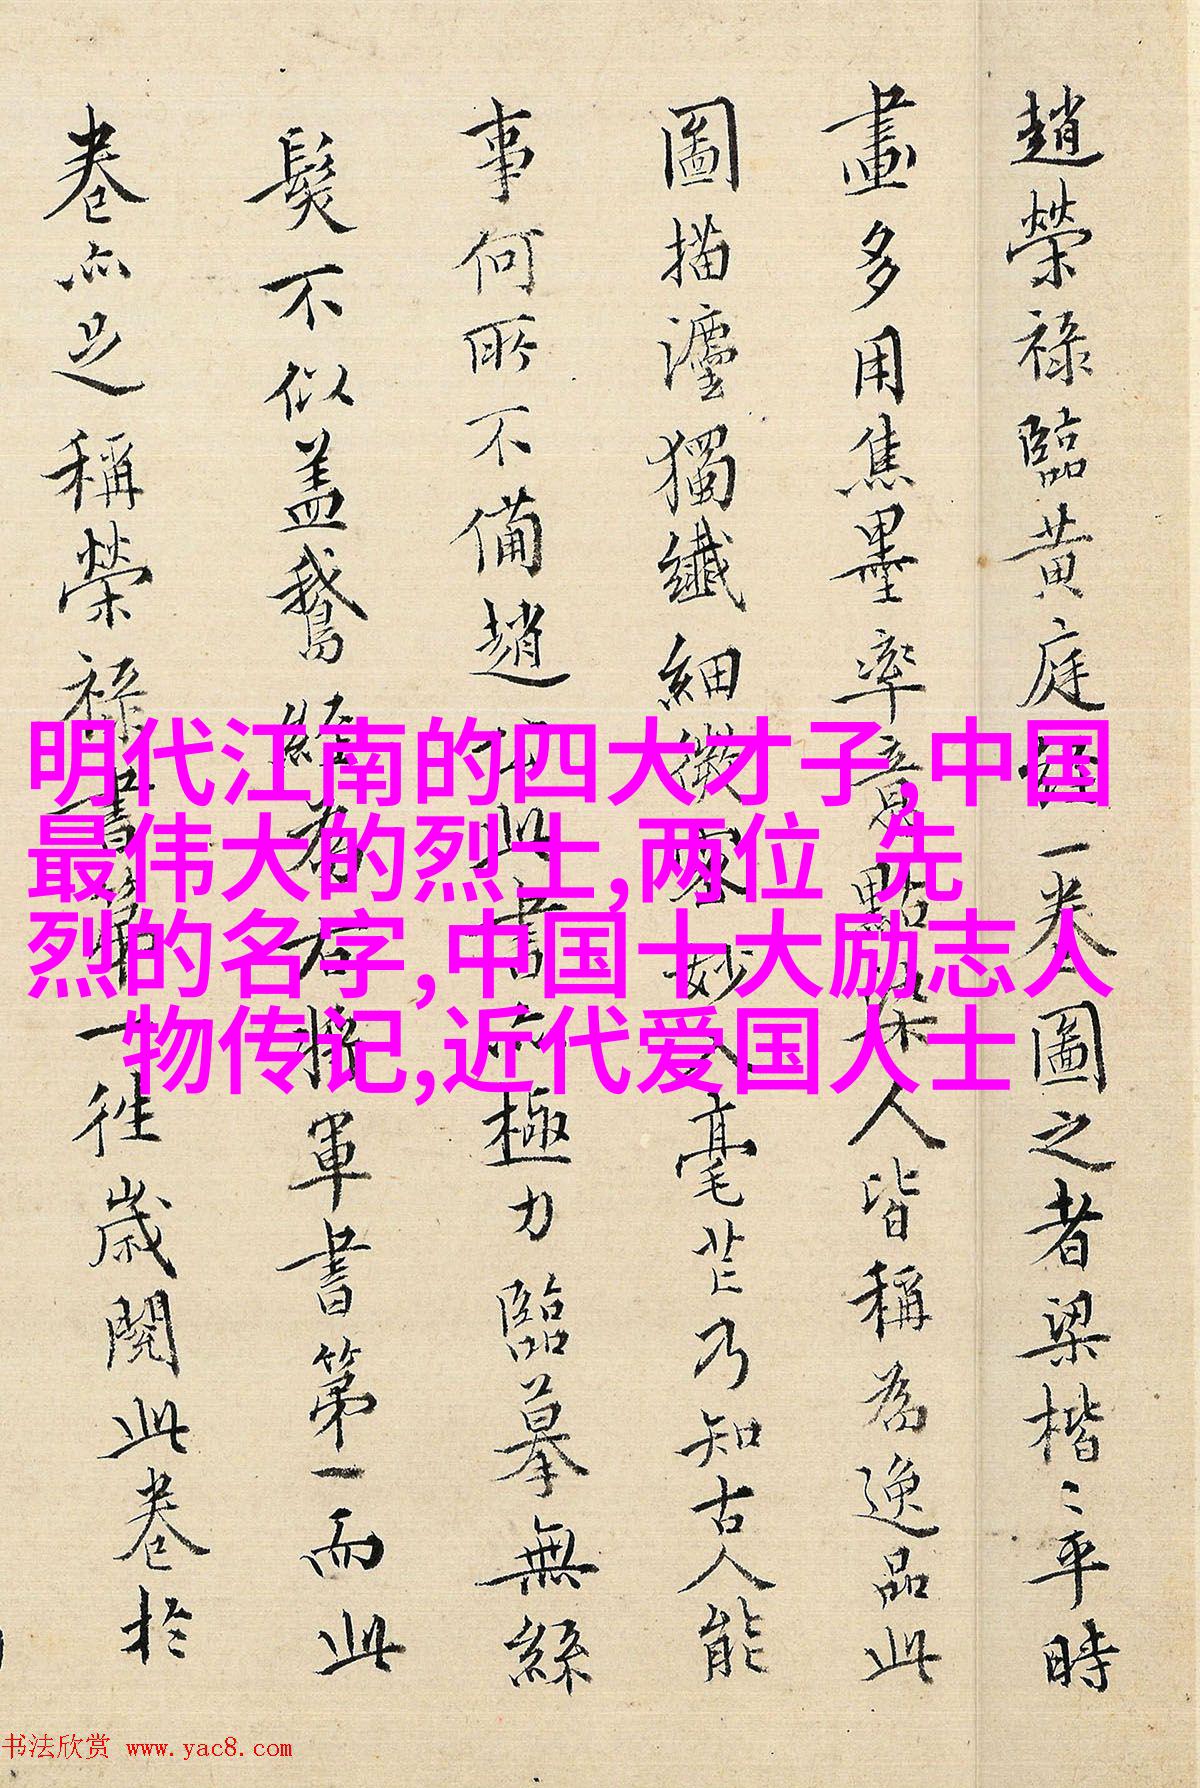 趙榮祿臨黃庭經一卷圖之者梁楷〻平時
畫多用焦墨率意點染人皆稱為逸品此
圖描灋獨纖細微密妙入毫芒乃知古人能
事何所不備趙公此書亦極力臨摹無絲
髮不似盖鵞經為右將軍書第一而此
卷亦足稱榮祿書第一往歲閱此卷於
明代江南的四大才子,中国
最伟大的烈士,两位 先
烈的名字,中国十大励志人
物传记,近代爱国人士
书法欣赏 www.yac8.com